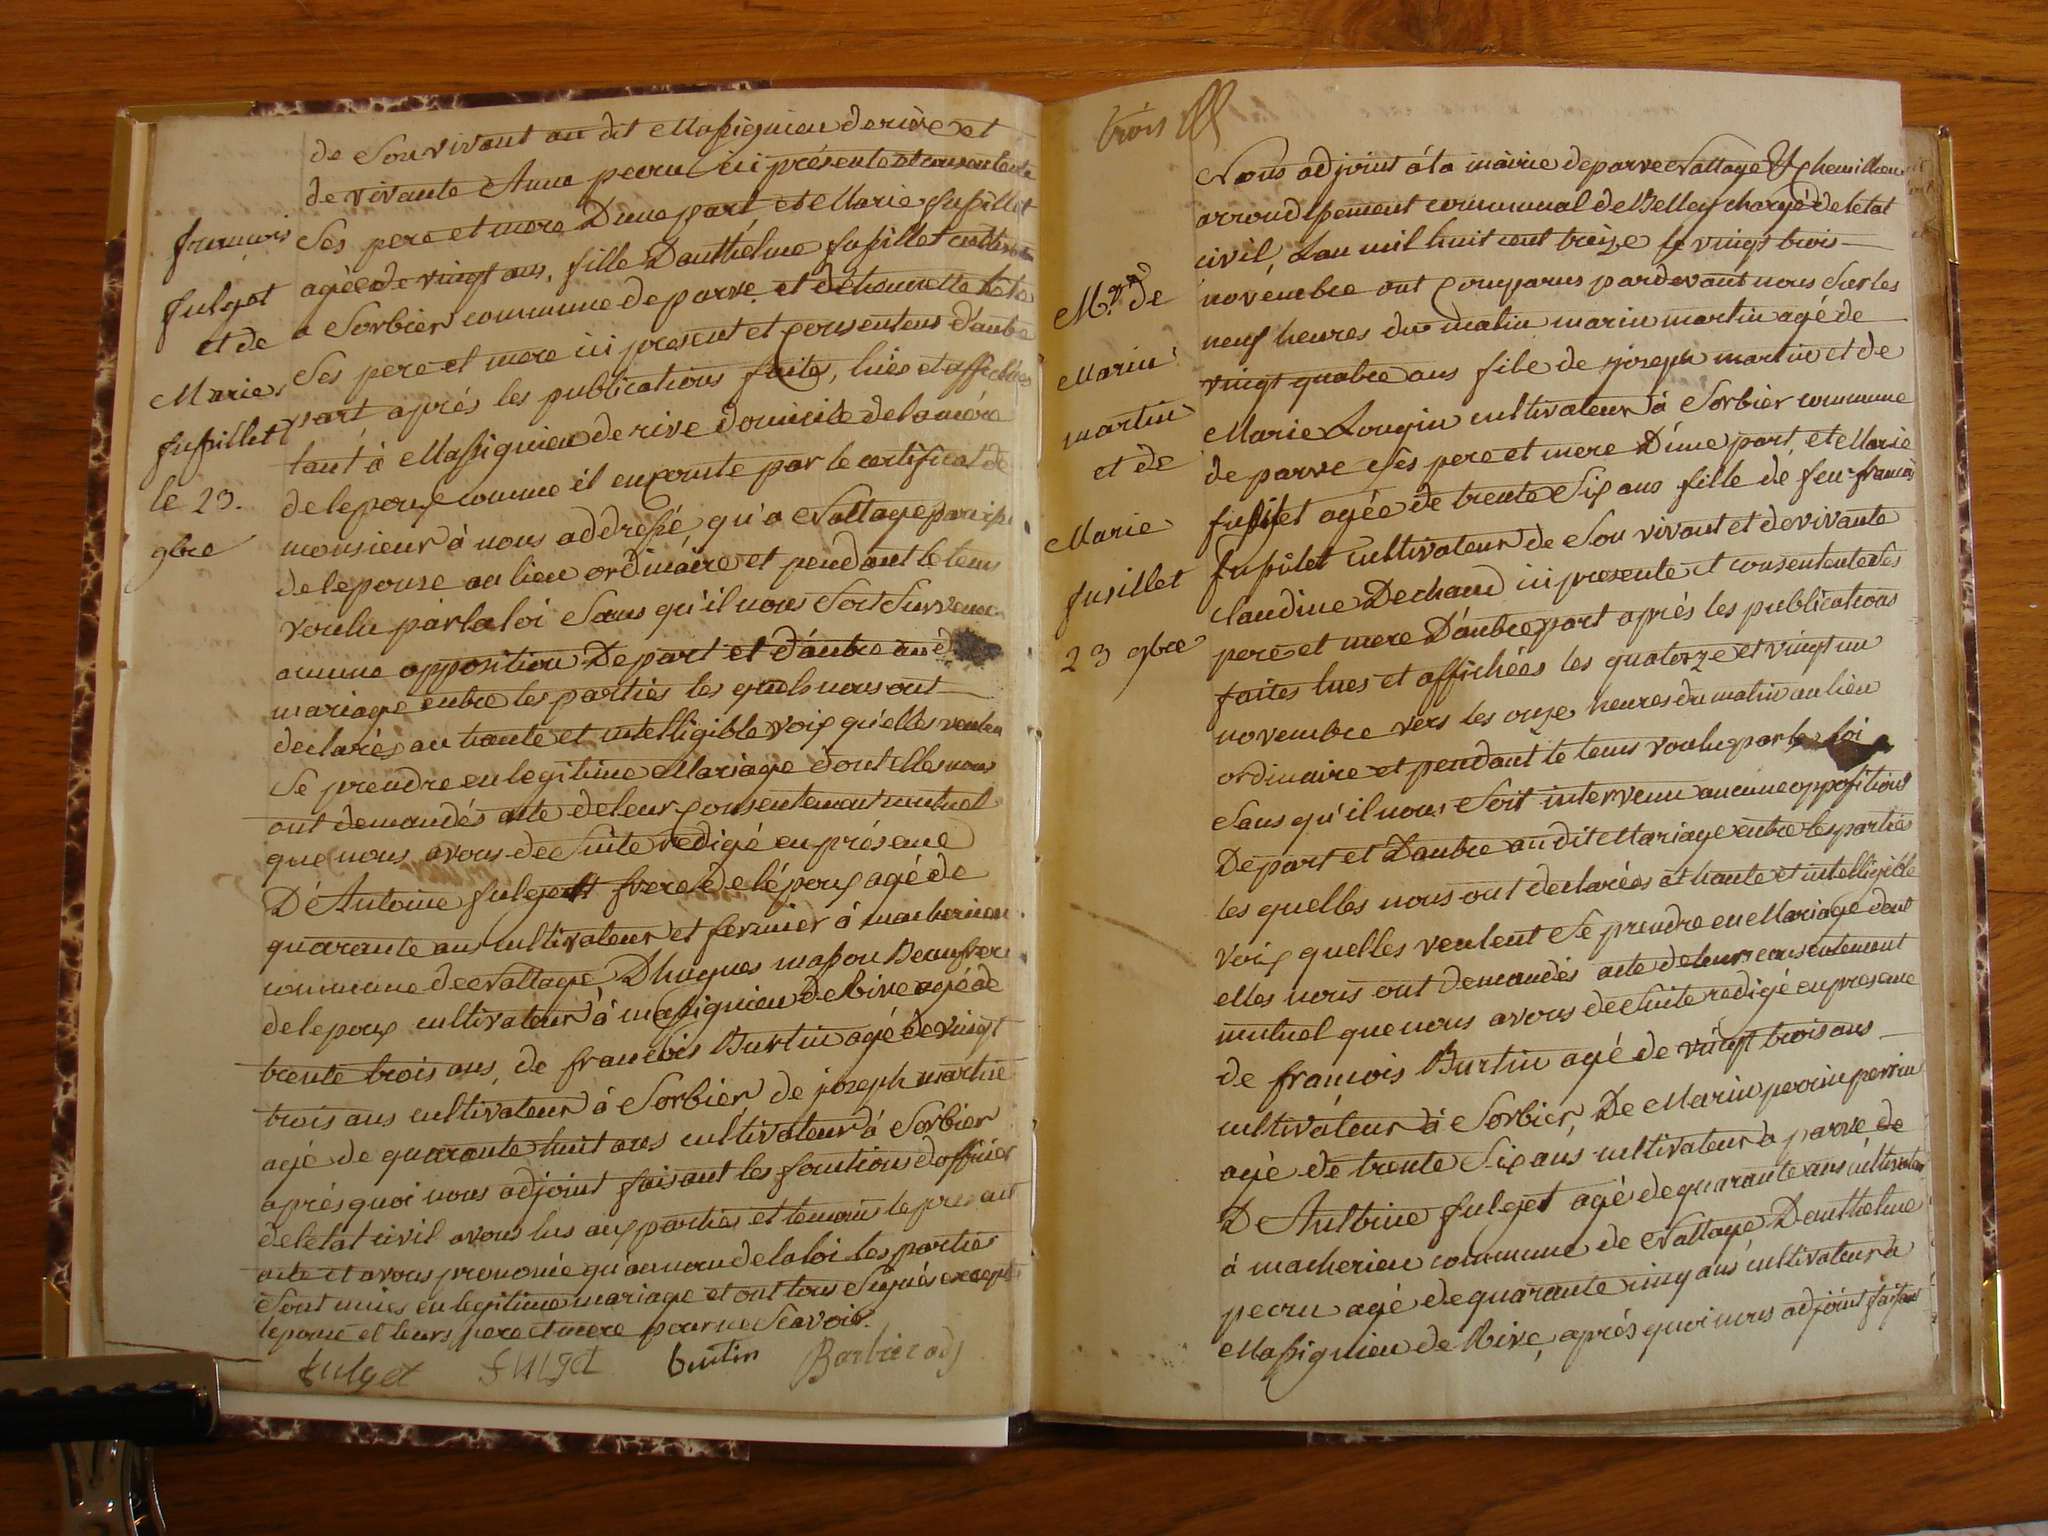 francois
fulget
et de
Marie
fusillet
le 23.
9bre
de Son vivant au dit Massignieu derive et
de vivante Anne pecru ici présente et consentente
Ses pere et mere Dune part, et Marie fusillet
agée de vingt ans, fille Danthelme fusillet cultivat
a Sorbier commune de parve et
Ses pere et mere ici present et consentens d'autre
part, aprés les publications faites, lües et affichées
tant à Massignieu de rive domicile de la mére
de lepoux comme il en conste par le certificat de
monsieur à nous addressé, qu'a Nattage
de lepouse au lieu ordinaire et pendant le tems
voulu par la loi Sans qu'il nous Soit Survenu
aucune opposition De part et d'autre au d
mariage entre les parties les quels nous ont
declarés au haute et intelligible voix qu'elles veulen
Se prendre en legitime Mariage dont elles nous
ont demandés acte de leur consentement mutuel
que nous avons de Suite redigé en présence
D'Antoine fulget frere de lépoux agé de
quarante ans cultivateur et fermier à macherieu
commune de Nattage, D'hugues masson Beaufrere
de lepoux cultivateur à massignieu de Rive agé de
trente trois ans, de francois Burtin agé de vingt
trois ans cultivateur à Sorbier de joseph martin
agé de quarante huit ans cultivateur à Sorbier
aprés quoi nous adjoint faisant les fonctions d'officier
de letat civil avons lus aux parties et temoins le present
acte et avons prononcé qu'au nom de la loi les parties
Sont unies en legitime mariage et ont tous Signés excepté
lepouse et leurs pere et mere pour ne Scavoir.
fulget fulget burtin Barbier adj
trois
M.ge de
Marin
martin
et de
Marie
fusillet
23 9bre
Nous adjoint á la mairie de parve Nattage & chemillieu
arrondissement communal de Belley chargé de letat
civil, Lan mil huit cent treize le vingt trois
novembre ont comparus pardevant nous Sur les
neuf heures du matin marin martin agé de
vingt quatre ans fils de joseph martin et de
Marie Longin cultivateur à Sorbier commune
de parve Ses pere et mere D'une part, et Marie
fusillet agée de trente Six ans fille de feu francois
fusillet Cultivateur de Son vivant et de vivante
Claudine Dechaud ici presente et consentente Ses
pere et mere D'autre part aprés les publications
faites lues et affichées les quatorze et vingt un
novembre vers les onze heures du matin au lieu
ordinaire et pendant le tems voulu par la loi
Sans qu'il nous Soit intervenu aucune oppositions
De part et Dautre au dit Mariage entre les parties
les quelles nous ont declarées at haute et intelligible
voix quelles veulent Se prendre en Mariage dont
elles nous ont demandés acte de leur consentement
mutuel que nous avons de Suite redigé en presence
de francois Burtin agé de vingt trois ans
cultivateur à Sorbier, De Marin perrin
agé de trente Six ans cultivateur a parve de
D'Antoine fulget agé de quarante ans cultivateur
à macherieu commune de Nattage Danthelme
pecru agé de quarante cinq ans cultivateur à
Massignieu de Rive, aprés quoi nous adjoint faisant